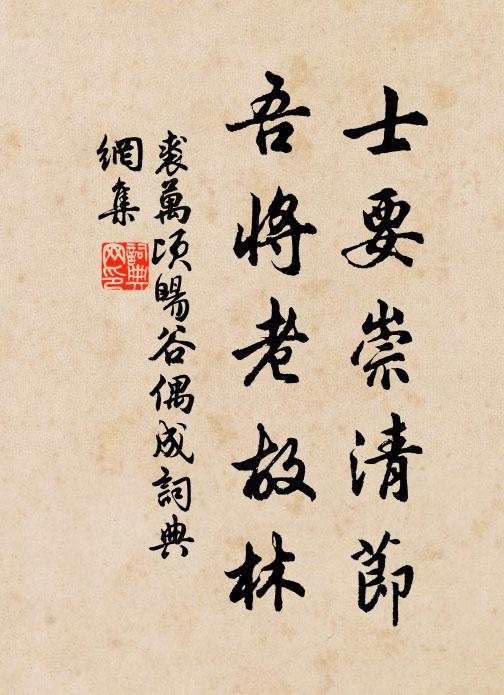 士要崇清節
吾將老故林
裘萬頃暘谷偶成詞典
網集
詞典
网印